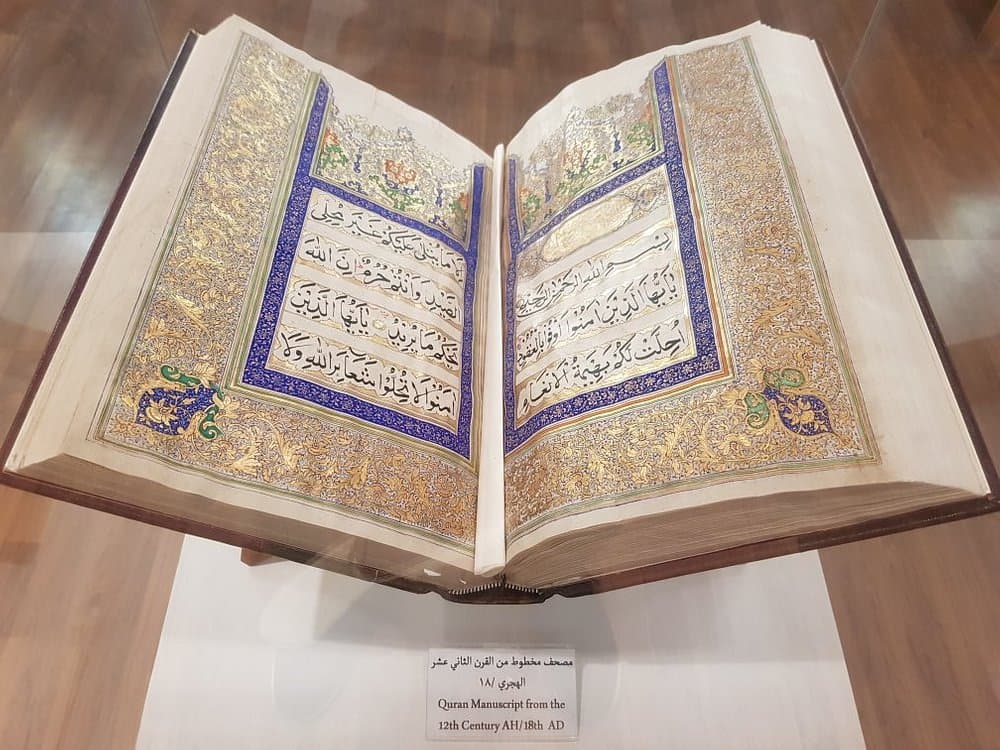 بِسْمِ اللهِ الرَّحْمٰنِ الرَّحِيْمِ
يٰاَيُّهَا الَّذِيْنَ اٰمَنُوْا اَوْفُوْا بِالْعُقُوْدِ
اُحِلَّتْ لَكُمْ بَهِيْمَةُ الْاَنْعَامِ
اِلَّا مَا يُتْلٰى عَلَيْكُمْ غَيْرَ مُحِلِّى
الصَّيْدِ وَاَنْتُمْ حُرُمٌ اِنَّ اللهَ
يَحْكُمُ مَا يُرِيْدُ يٰاَيُّهَا الَّذِيْنَ
اٰمَنُوْا لَا تُحِلُّوْا شَعَائِرَ اللهِ وَلَا
مصحف مخطوط من القرن الثاني عشر
الهجري /١٨
Quran Manuscript from the
12th Century AH/18th AD